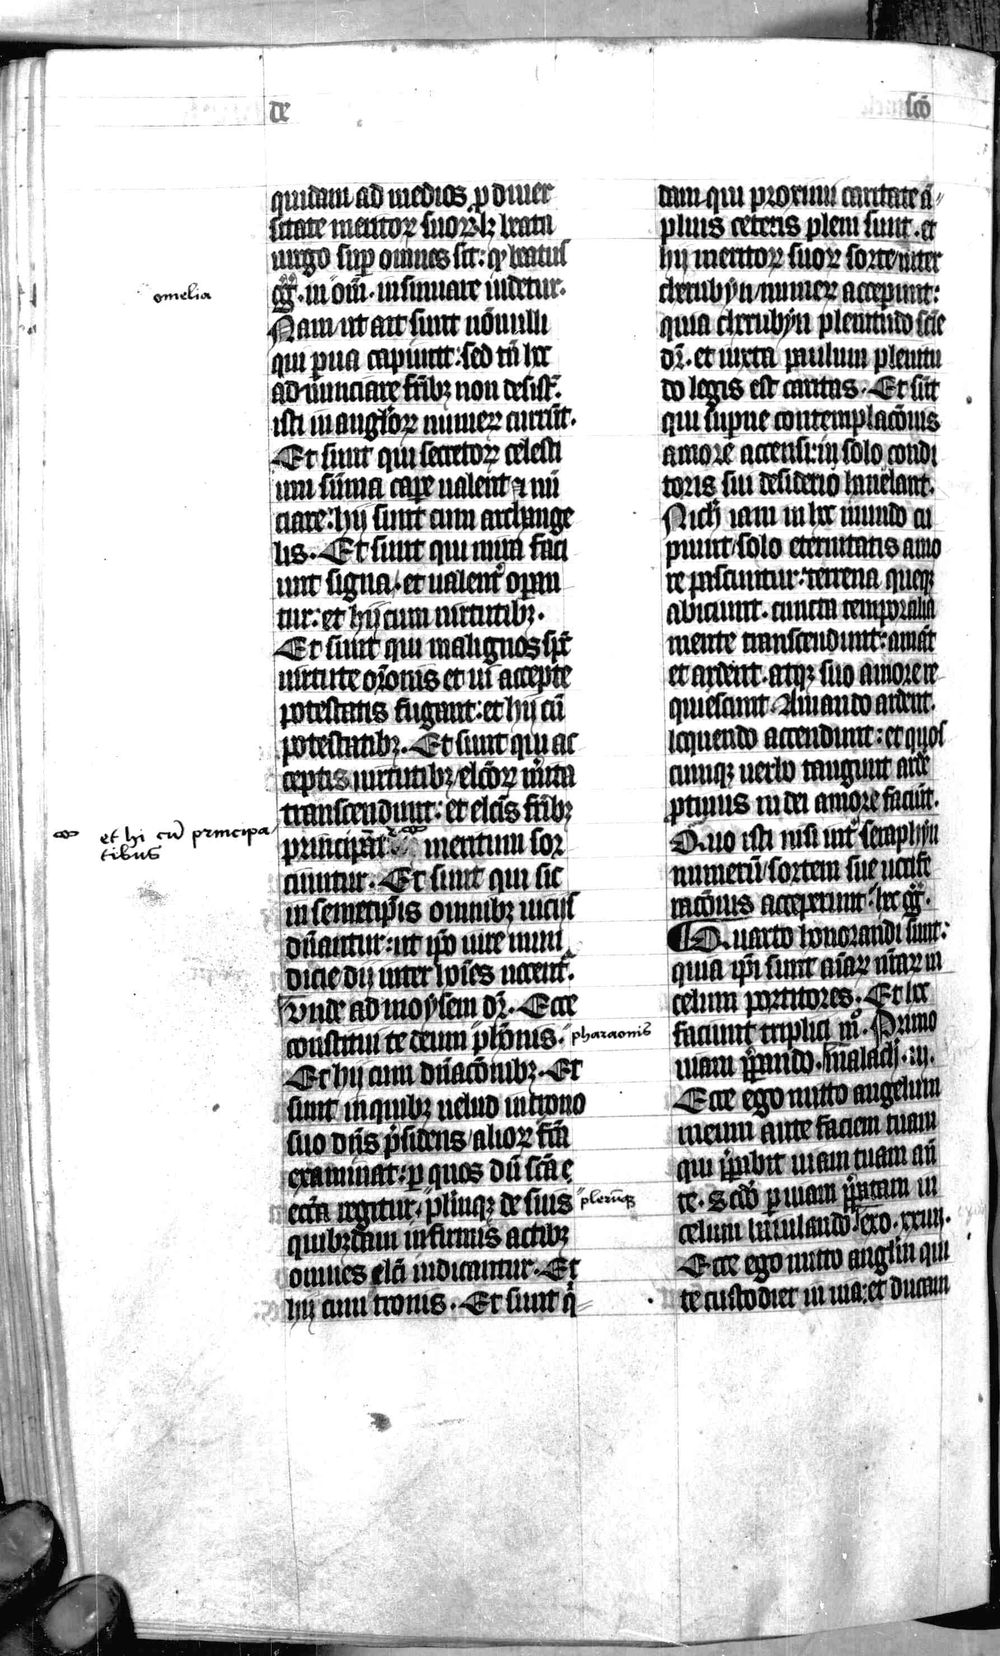 de
sco̅
quidam ad medios p diuer
sitate meritoꝝ suoꝝ lꝫ beata
uirgo sup omnes sit: qꝫ beatus
omelia
gg̅. in om̅. insinuare uidetur.
Nam ut ait sunt no̅nulli
qui parua capiunt: sed tn̅ hec
ad nunciare fr̅ibꝫ non desist̅.
isti in anglo̅ꝝ numeꝝ curru̅t.
Et sunt qui secretoꝝ celesti
um su̅ma cape ualent ⁊ nu̅
ciare: hij sunt cum archange
lis. Et sunt qui mira faci
unt signa. et ualent̾ opan
tur: et hij cum uirtutibꝫ.
Et sunt qui malignos sp̅s
uirtute or̅onis et ui accepte
potestatis fugant: et hij cu̅
potestatibꝫ. Et sunt qui ac
ceptis uirtutibꝫ elc̅oꝝ m̅ita
transcendunt: et elc̅is fr̅ibꝫ
et hi cu̅ principa
tibus
principa̅t meritum sor
ciuntur. Et sunt qui sic
in semetip̅is omnibꝫ uicijs
dn̅antur: ut ip̅o iure mun
dicie dij inter ho̅ies uocent̾.
Vnde ad moysem dr̅. Ecce
constitui te deum ph̅onis.
pharaonis
Et hij cum dn̅acionibꝫ. Et
sunt in quibꝫ uelud in trono
suo dn̅s p̅sidens alioꝝ fc̅a
examinat: p quos du̅ sc̅a e
ecc̅a regitur. pleru̅qꝫ de suis
pleru̅qꝫ
quibꝫdam infirmis actibꝫ
omnes elc̅i iudicantur. Et
hij cum tronis. Et sunt q̅
dam qui proximi caritate a̅
plius ceteris pleni sunt. et
hij meritoꝝ suoꝝ sorte inter
cherubyn numeꝝ acceperunt:
quia cherubyn plenitudo scie̅
dr̅. et iuxta paulum plenitu
do legis est caritas. Et su̅t
qui supne contemplaco̅nis
amore accensi: in solo condi
toris sui desiderio hanelant.
Nich̅ iam in hoc mundo cu
piunt solo eternitatis amo
re pascuntur. terrena queqꝫ
abiciunt. cuncta temporalia
mente transcendunt: ama̅t
et ardent. atqꝫ suo amore re
quiescunt. Amando ardent.
loquendo accendunt: et quos
cunqꝫ uerbo tangunt arde̅
ptinus in dei amore faciu̅t.
Quo isti nisi int̾ seraphyn
numeru̅ sortem sue uocifi
caco̅nis acceperunt hec gg̅.
Quarto honorandi sunt:
quia ip̅i sunt ai̅aꝝ nr̅aꝝ in
celum portitores. Et hoc
faciunt triplici mo. Primo
uiam p̅pando. malach̅. iij.
Ecce ego mitto angelum
meum ante faciem tuam
qui p̅pabit uiam tuam an̅
te. Sc̅do p uiam p̅patam in
celum baiulando exo. xxiii.
Ecce ego mitto anglu̅m qui
te custodiet in uia: et ducam